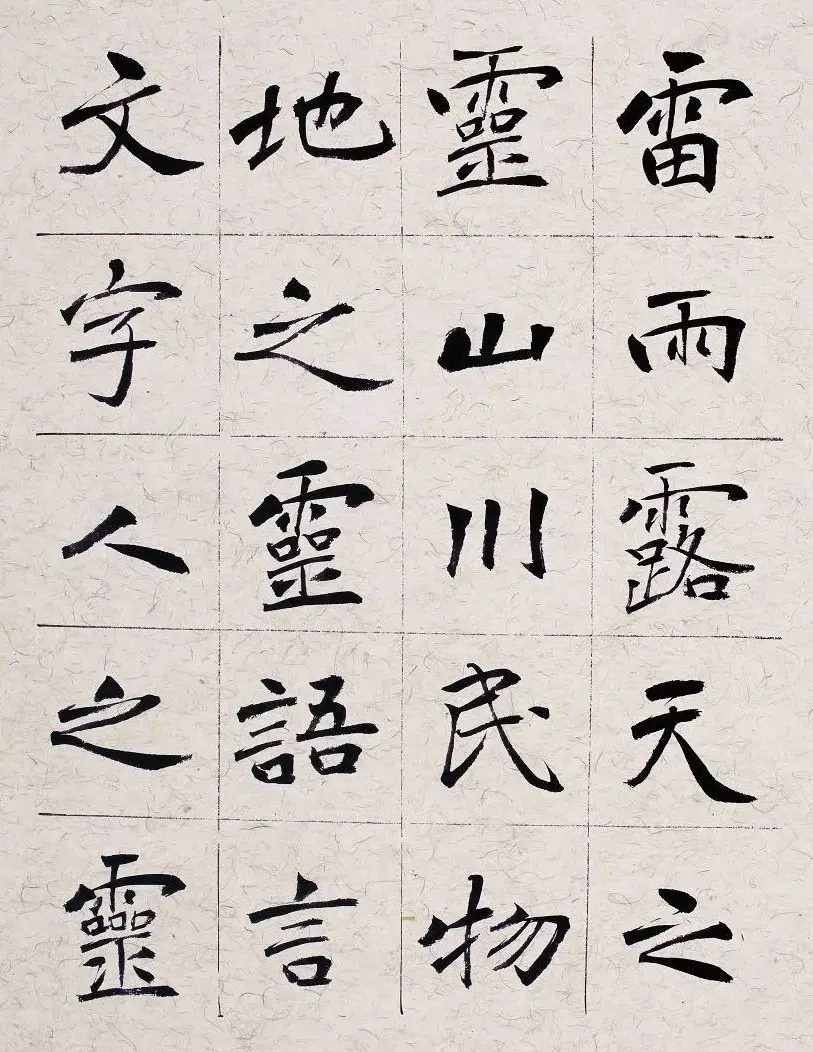 雷雨露天之
靈山川民物
地之靈語言
文字人之靈